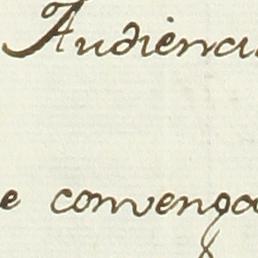 Audiencia
e convenga